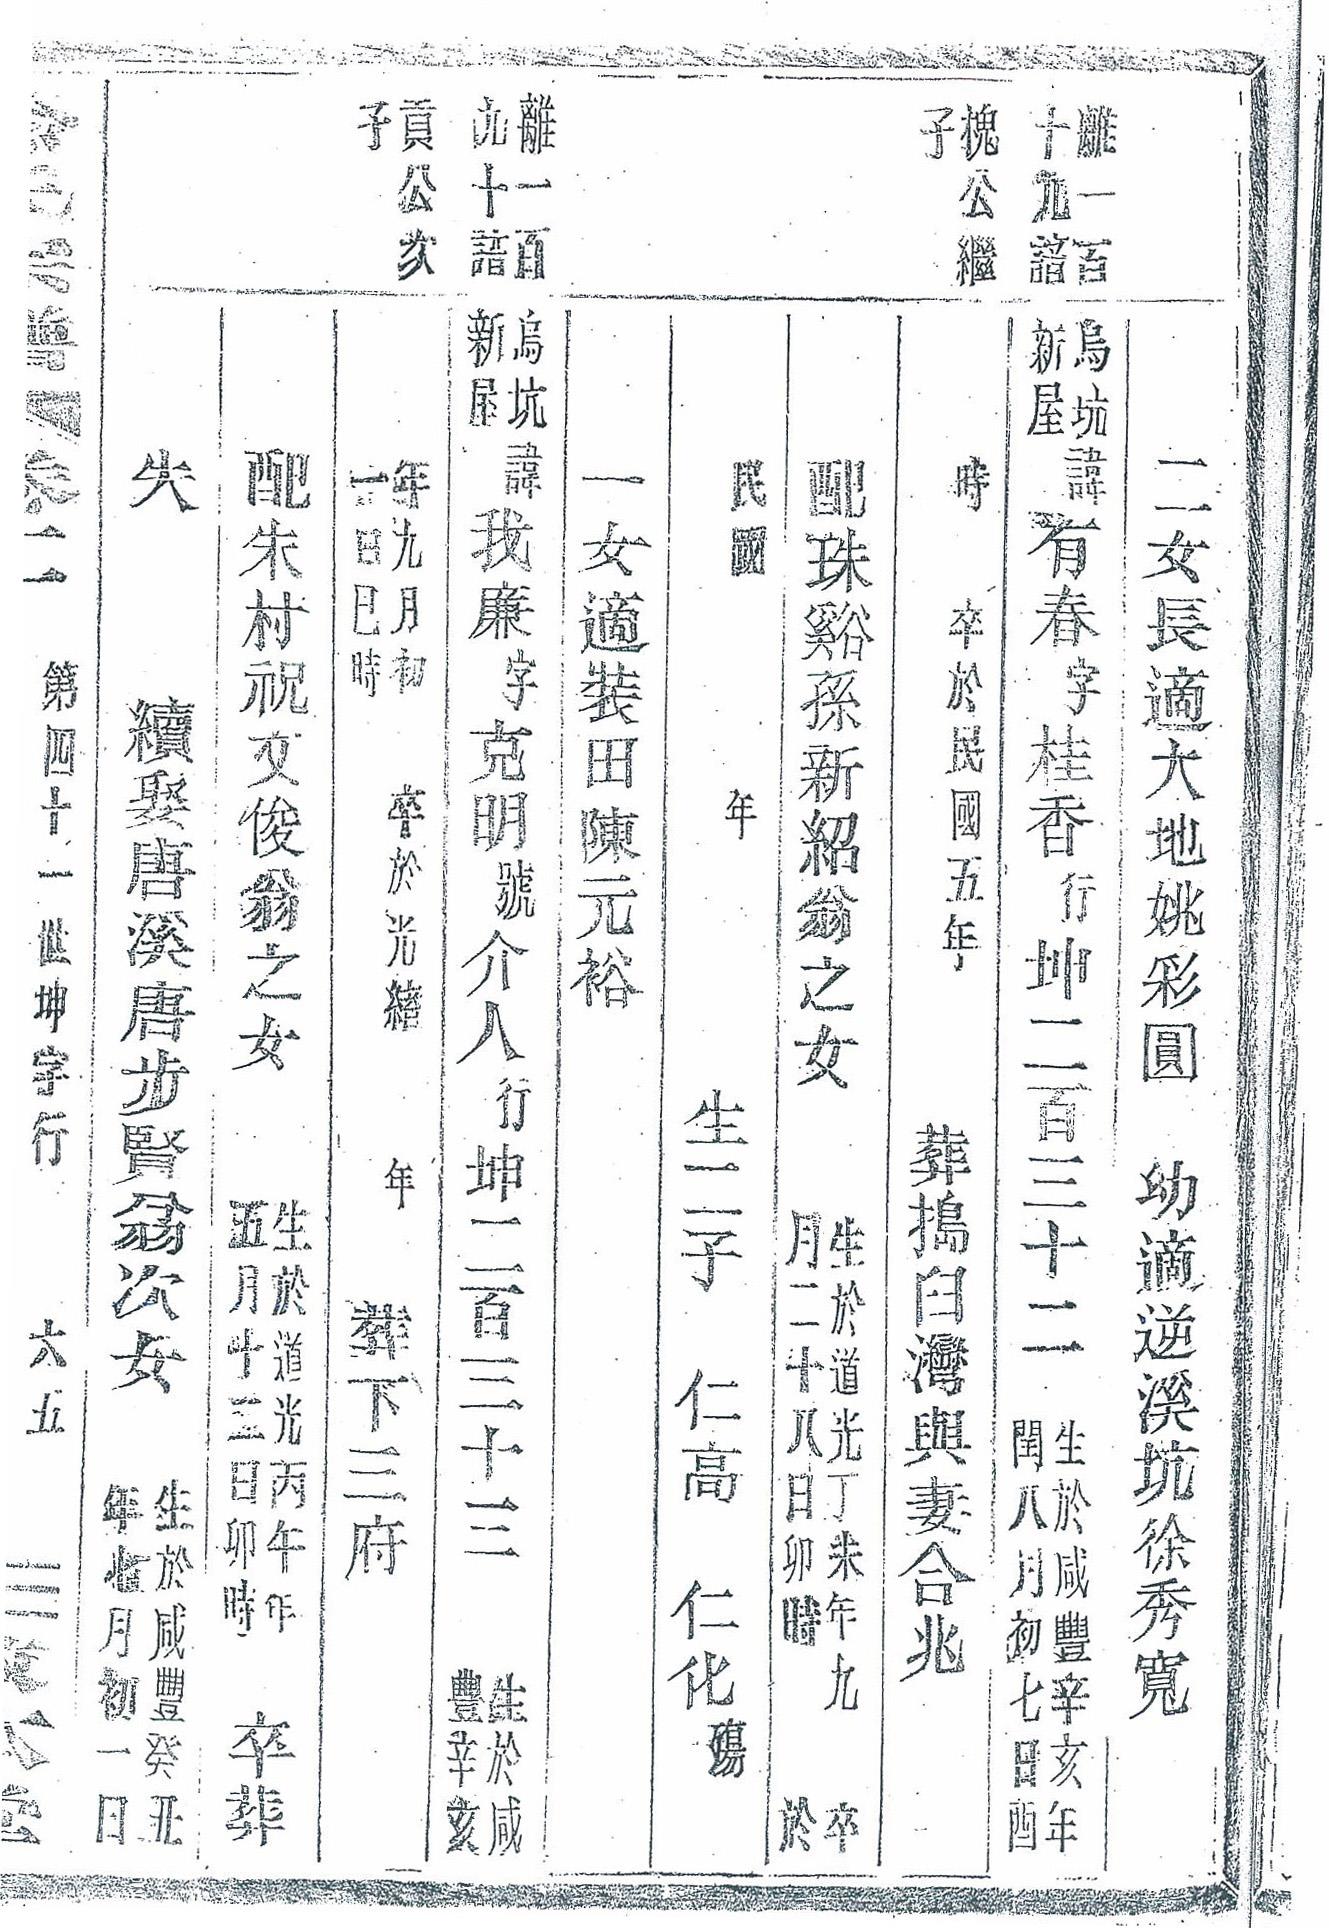 二女長適大地姚彩圓　幼適逆溪坑徐秀寬
離一百
十九諳
烏坑
新屋
諱有春字桂香行坤二百三十二
生於咸豐辛亥年
閏八月初七日酉
槐公繼
子
時　卒於民國五年　葬搗臼灣與妻合兆
配珠谿孫新紹翁之女
生於道光丁未年九　卒
月二十八日卯時　於
民國　年　生二子　仁高　仁化殤
一女適裝田陳元裕
離一百
九十諳
烏坑
新屋
諱我廉字克明號介人行坤二百三十三
生於咸
豐辛亥
貢公亥
子
年九月初
一日巳時
卒於光緒　年　葬下三府
配朱村祝文俊翁之女
生於道光丙午年
五月十三日卯時
卒葬
失　續娶唐溪唐步賢翁次女
生於咸豐癸丑
年七月初一日
第四十一世坤字行　六五